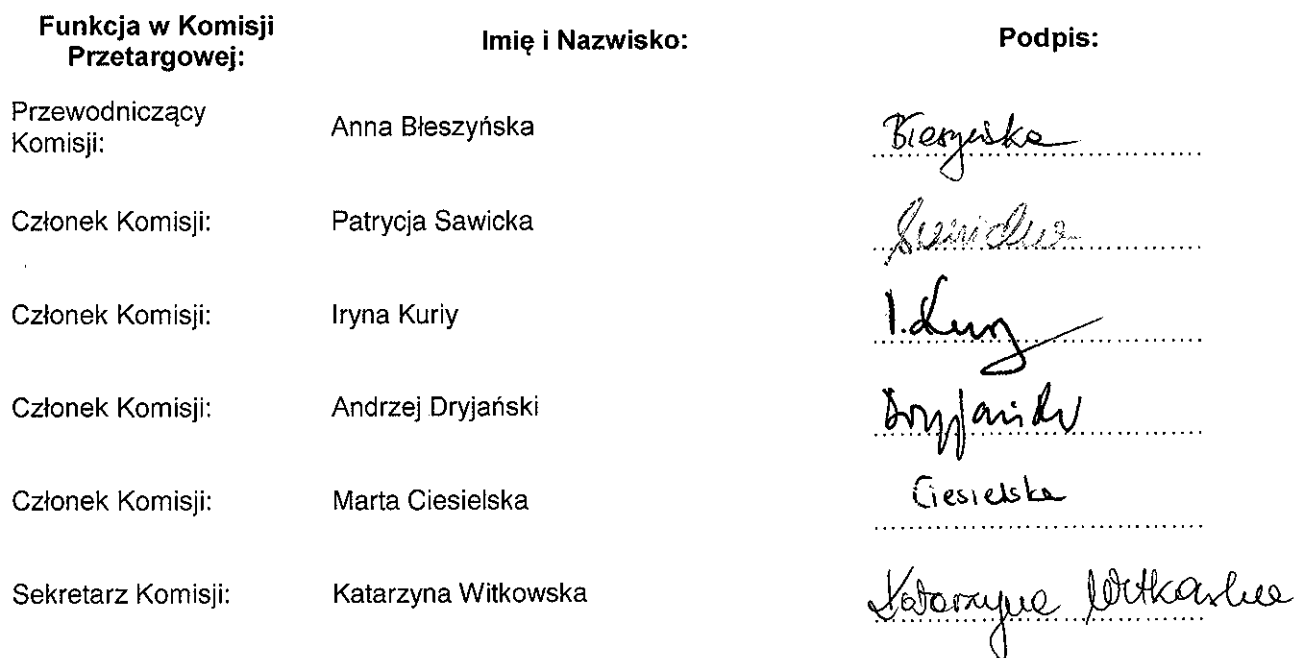 Funkcja w Komisji
Przetargowej:
Imię i Nazwisko:
Podpis:
Przewodniczący
Komisji:
Anna Błeszyńska
Błeszyńska
Członek Komisji:
Patrycja Sawicka
Sawicka
Członek Komisji:
Iryna Kuriy
Członek Komisji:
Andrzej Dryjański
Dryjański
Członek Komisji:
Marta Ciesielska
Ciesielska
Sekretarz Komisji:
Katarzyna Witkowska
Katarzyna Witkowska